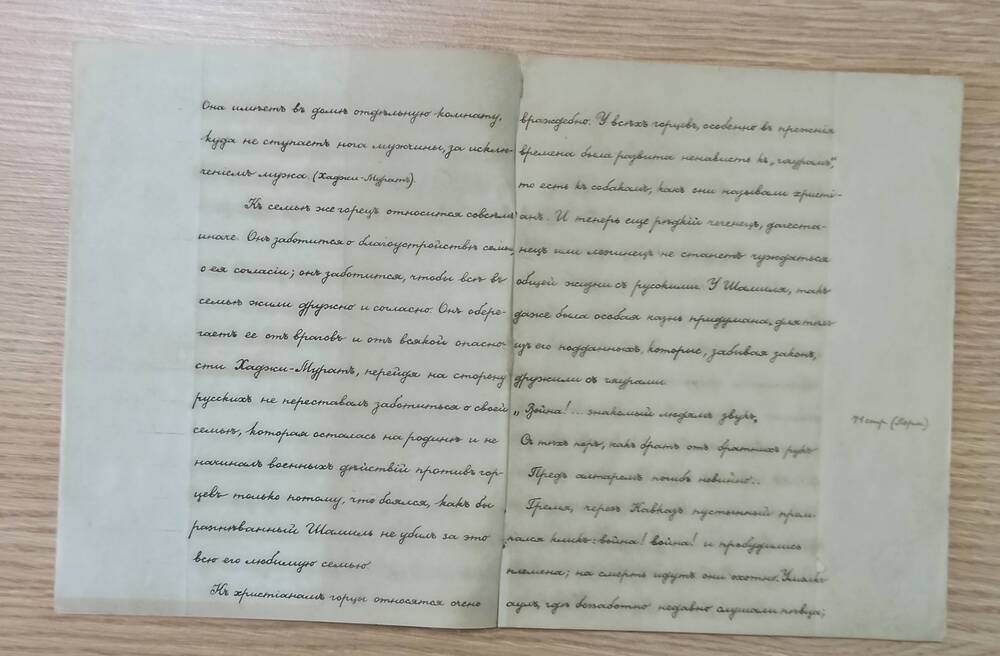 Она имѣетъ въ домѣ отдѣльную комнату,
куда не ступаетъ нога мужчины, за исклю-
ченіемъ мужа (Хаджи-Муратъ).
Къ семьѣ же горецъ относится совсѣмъ
иначе. Онъ заботится о благоустройствѣ семьи,
о ея согласіи; онъ заботится, чтобы всѣ въ
семьѣ жили дружно и согласно. Онъ обере-
гаетъ ее отъ враговъ и отъ всякой опасно-
сти Хаджи-Муратъ, перейдя на сторону
русскихъ не переставалъ заботиться о своей
семьѣ, которая осталась на родинѣ и не
начиналъ военныхъ дѣйствій противъ гор-
цевъ только потому, что боялся, какъ бы
разгнѣванный Шамиль не убилъ за это
всю его любимую семью.
Къ христіанамъ горцы относятся очень
враждебно. У всѣхъ горцевъ, особенно въ прежнія
времена была развита ненависть къ „гяурамъ“,
то есть къ собакамъ, какъ они называли христі-
анъ. И теперь еще рѣдкій чеченецъ, дагеста-
нецъ или лезгинецъ не станетъ чуждаться
общей жизни съ русскими. У Шамиля, такъ
даже была особая казнь придумана, для тѣхъ
изъ его подданныхъ, которые, забывая законъ,
дружили съ гяурами
„Война!... знакомый людямъ звукъ,
Съ тѣхъ поръ, какъ братъ отъ братнихъ рукъ
Предъ алтаремъ погибъ невинно...
Гремя, черезъ Кавказъ пустынный пром-
чался кликъ: война! война! и пробудились
племена; на смерть идутъ они охотно. Умолкъ
аулъ, гдѣ беззаботно недавно слушали пѣвца;
71 стр. (Лерм.)